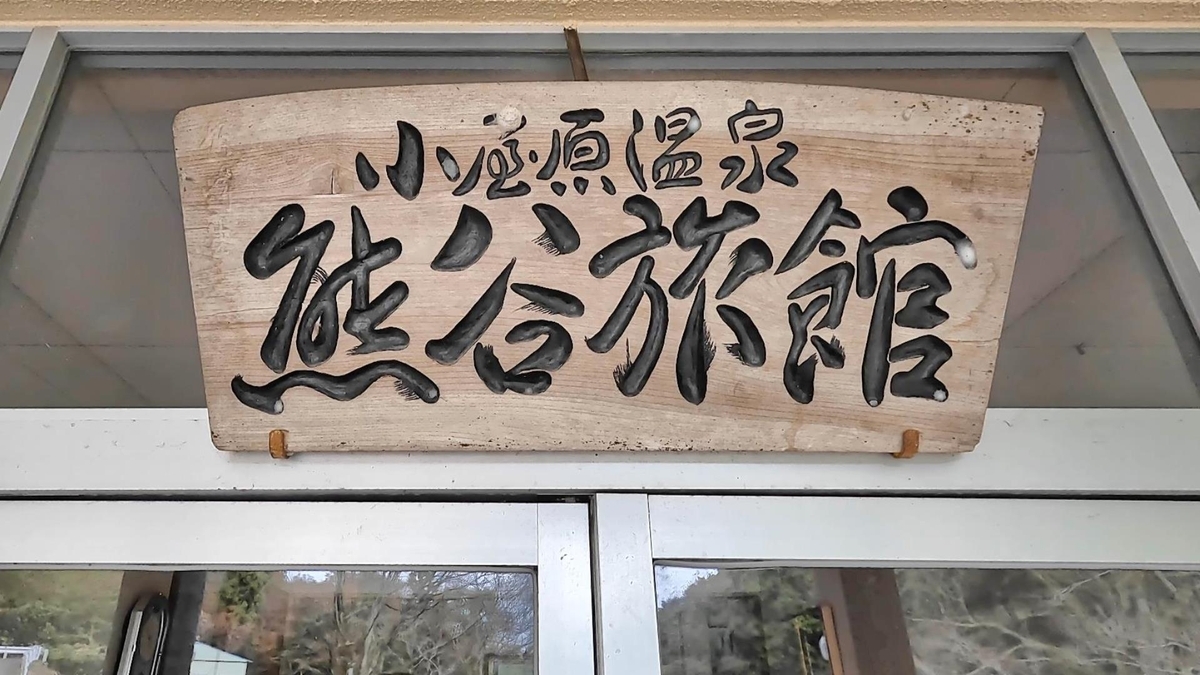 小屋原温泉
熊谷旅館